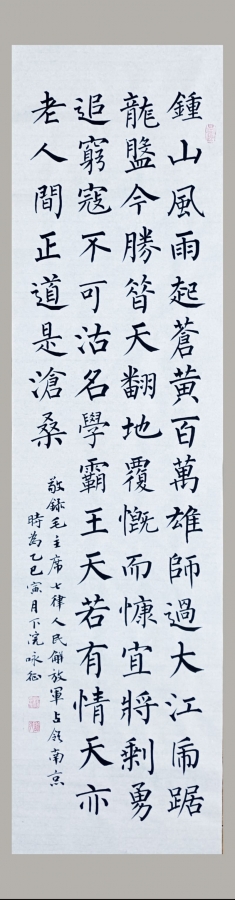 鍾山風雨起蒼黃百萬雄師過大江虎踞
龍盤今勝昔天翻地覆慨而慷宜將剩勇
追窮寇不可沽名學霸王天若有情天亦
老人間正道是滄桑
敬錄毛主席七律人民解放軍占領南京
時為乙巳寅月下浣咏征